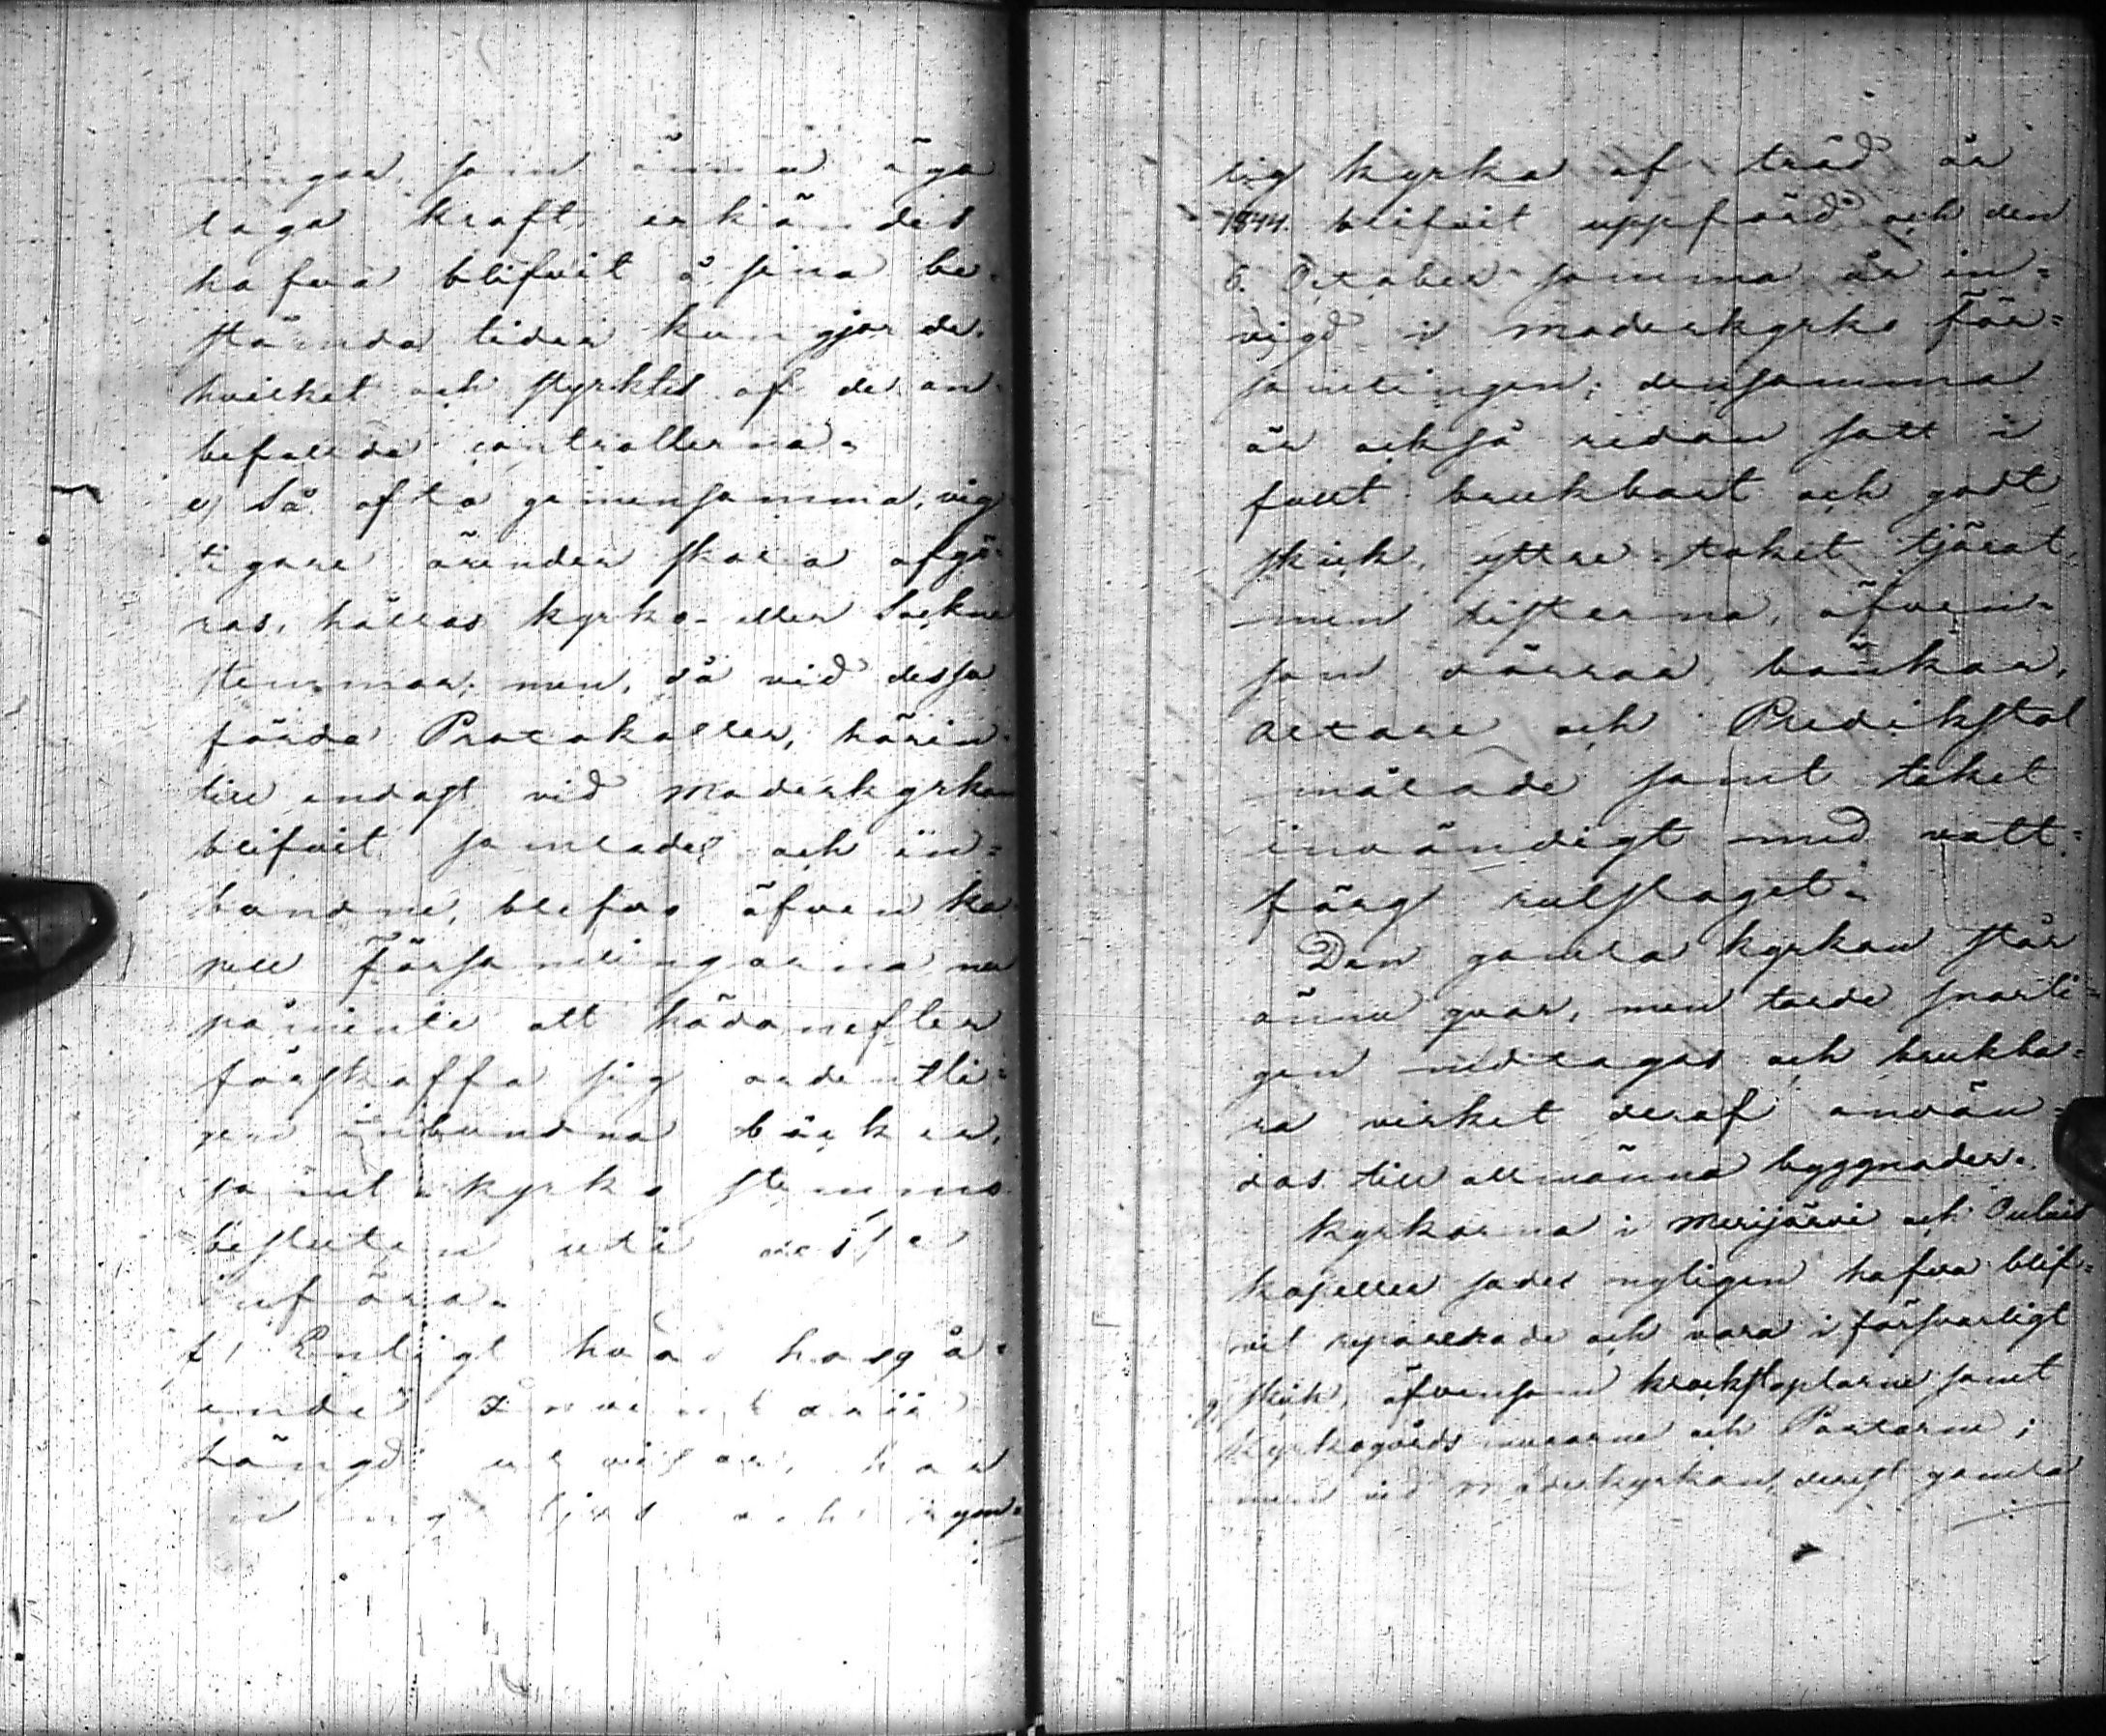 ningar, som ännu äga
laga kraft, erkändes
hafva blifvit å sina be-
stämda tider kungjorde,
hvilket och styrktes af de an-
befallda controllerna.
e) Så ofta gemensamma, vig-
tigare ärender skola afgö-
ras, hållas kyrko- eller Sockne
stemmor; men, då vid dessa
förda Protokoller, härin-
till endast vid Moderkyrkan
blifvit samlade och in=
bundne, blefvo äfven ka-
pell Församlingarna nu
påminte att hädanefter
förskaffa sig ordentli=
gen inbundna böcker,
samt kyrko stemmo
besluten uti dessa
införa.
f) Enligt hvad
ende Inventarii
längd utvisar, har
en och rym=
lig kyrka af träd år
1844 blifvit uppförd och den
6. October samma år in=
vigd i Moderkyrko För=
samlingen; densamma
är också redan satt i
fullt brukbart och godt
skick, yttre taket tjärat,
men listerna, äfven-
som dörrar, bänkar,
Altare och Predikstol
målade samt taket
invändigt med vatt=
färg rulstaget.
Den gamla kyrkan står
ännu qvar, men torde snarli=
gen nedtagas och brukba=
ra virket deraf använ=
das till allmänna byggnader.
Kyrkorna i Merijärvi och Oulais
kapeller sades nyligen hafva blif=
vit reparerade och vara i försvarligt
g, skick, äfvensom klockstaplarne samt
Kyrkogårds murarne och Portarne;
men vid Moderkyrkan, derest gamla